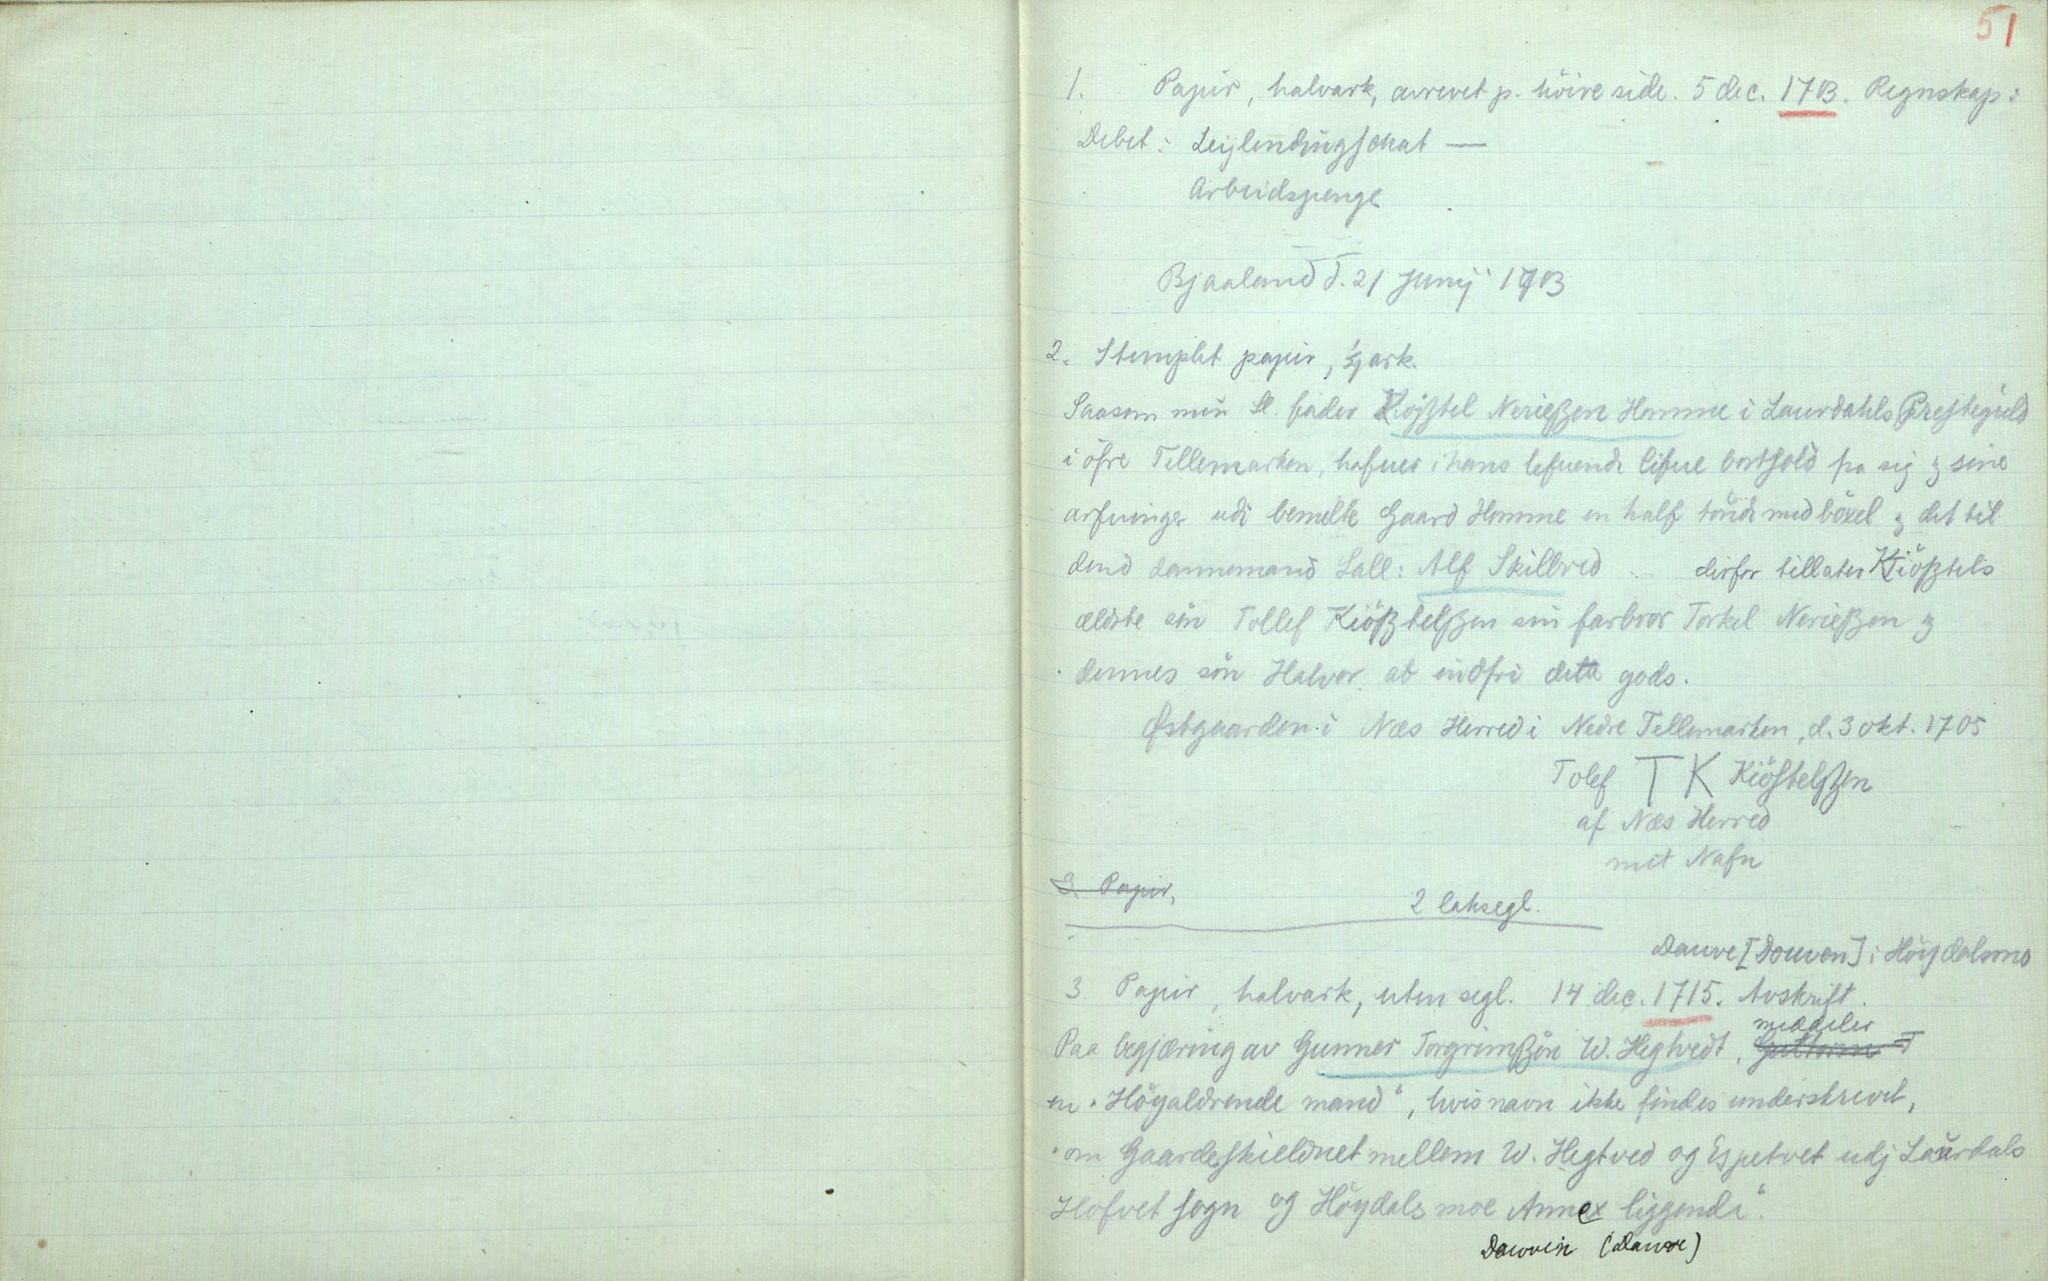 51
1. Papir, halvark, avrevet p. höire side. 5 dec. 1703. Regnskap:
Debet: Leylendingschat —
Arbeidspenge
Bjaaland d. 21 Junij 1703
2. Stemplet papir, 1/4 ark.
Saasom min Sl. fader Kiößtel Nerießen Homme i Laurdahls Prestegield
i öfre Tellemarken, hafuer i hans lefuende lifue bortsold fra sig og sine
arfuinger udi bemelte Gaard Homme en half tönde med böxel og det til
dend dannemand Sall: Alf Skilbred .. derfor tillater Kiößtels
ældste sön Tollef Kiößtelßen sin farbror Torkel Nerießen og
dennes sön Halvor at indfri dette gods.
Østgaarden i Næs Herred i Nedre Tellemarken, d. 3 okt. 1705
Tolef T K Kiöstelßen
af Næs Herred
mit Nafn
3. Papir,
2 laksegl.
Dauve [Douven] i Höydalsmo
3. Papir, halvark, uten segl. 14 dec. 1715. Avskrift.
meddeler
Paa begjæring av Gunner Torgrimßön W. Hegtvedt, Guttorm T
en "Höyaldrende mand", hvis navn ikke findes underskrevet,
"om Gaardeskieldnet mellem W. Hegtved og Espetvet udj Laurdals
Hofvet sogn og Höydalsmoe Annex liggende".
Dauvin (Dauve)